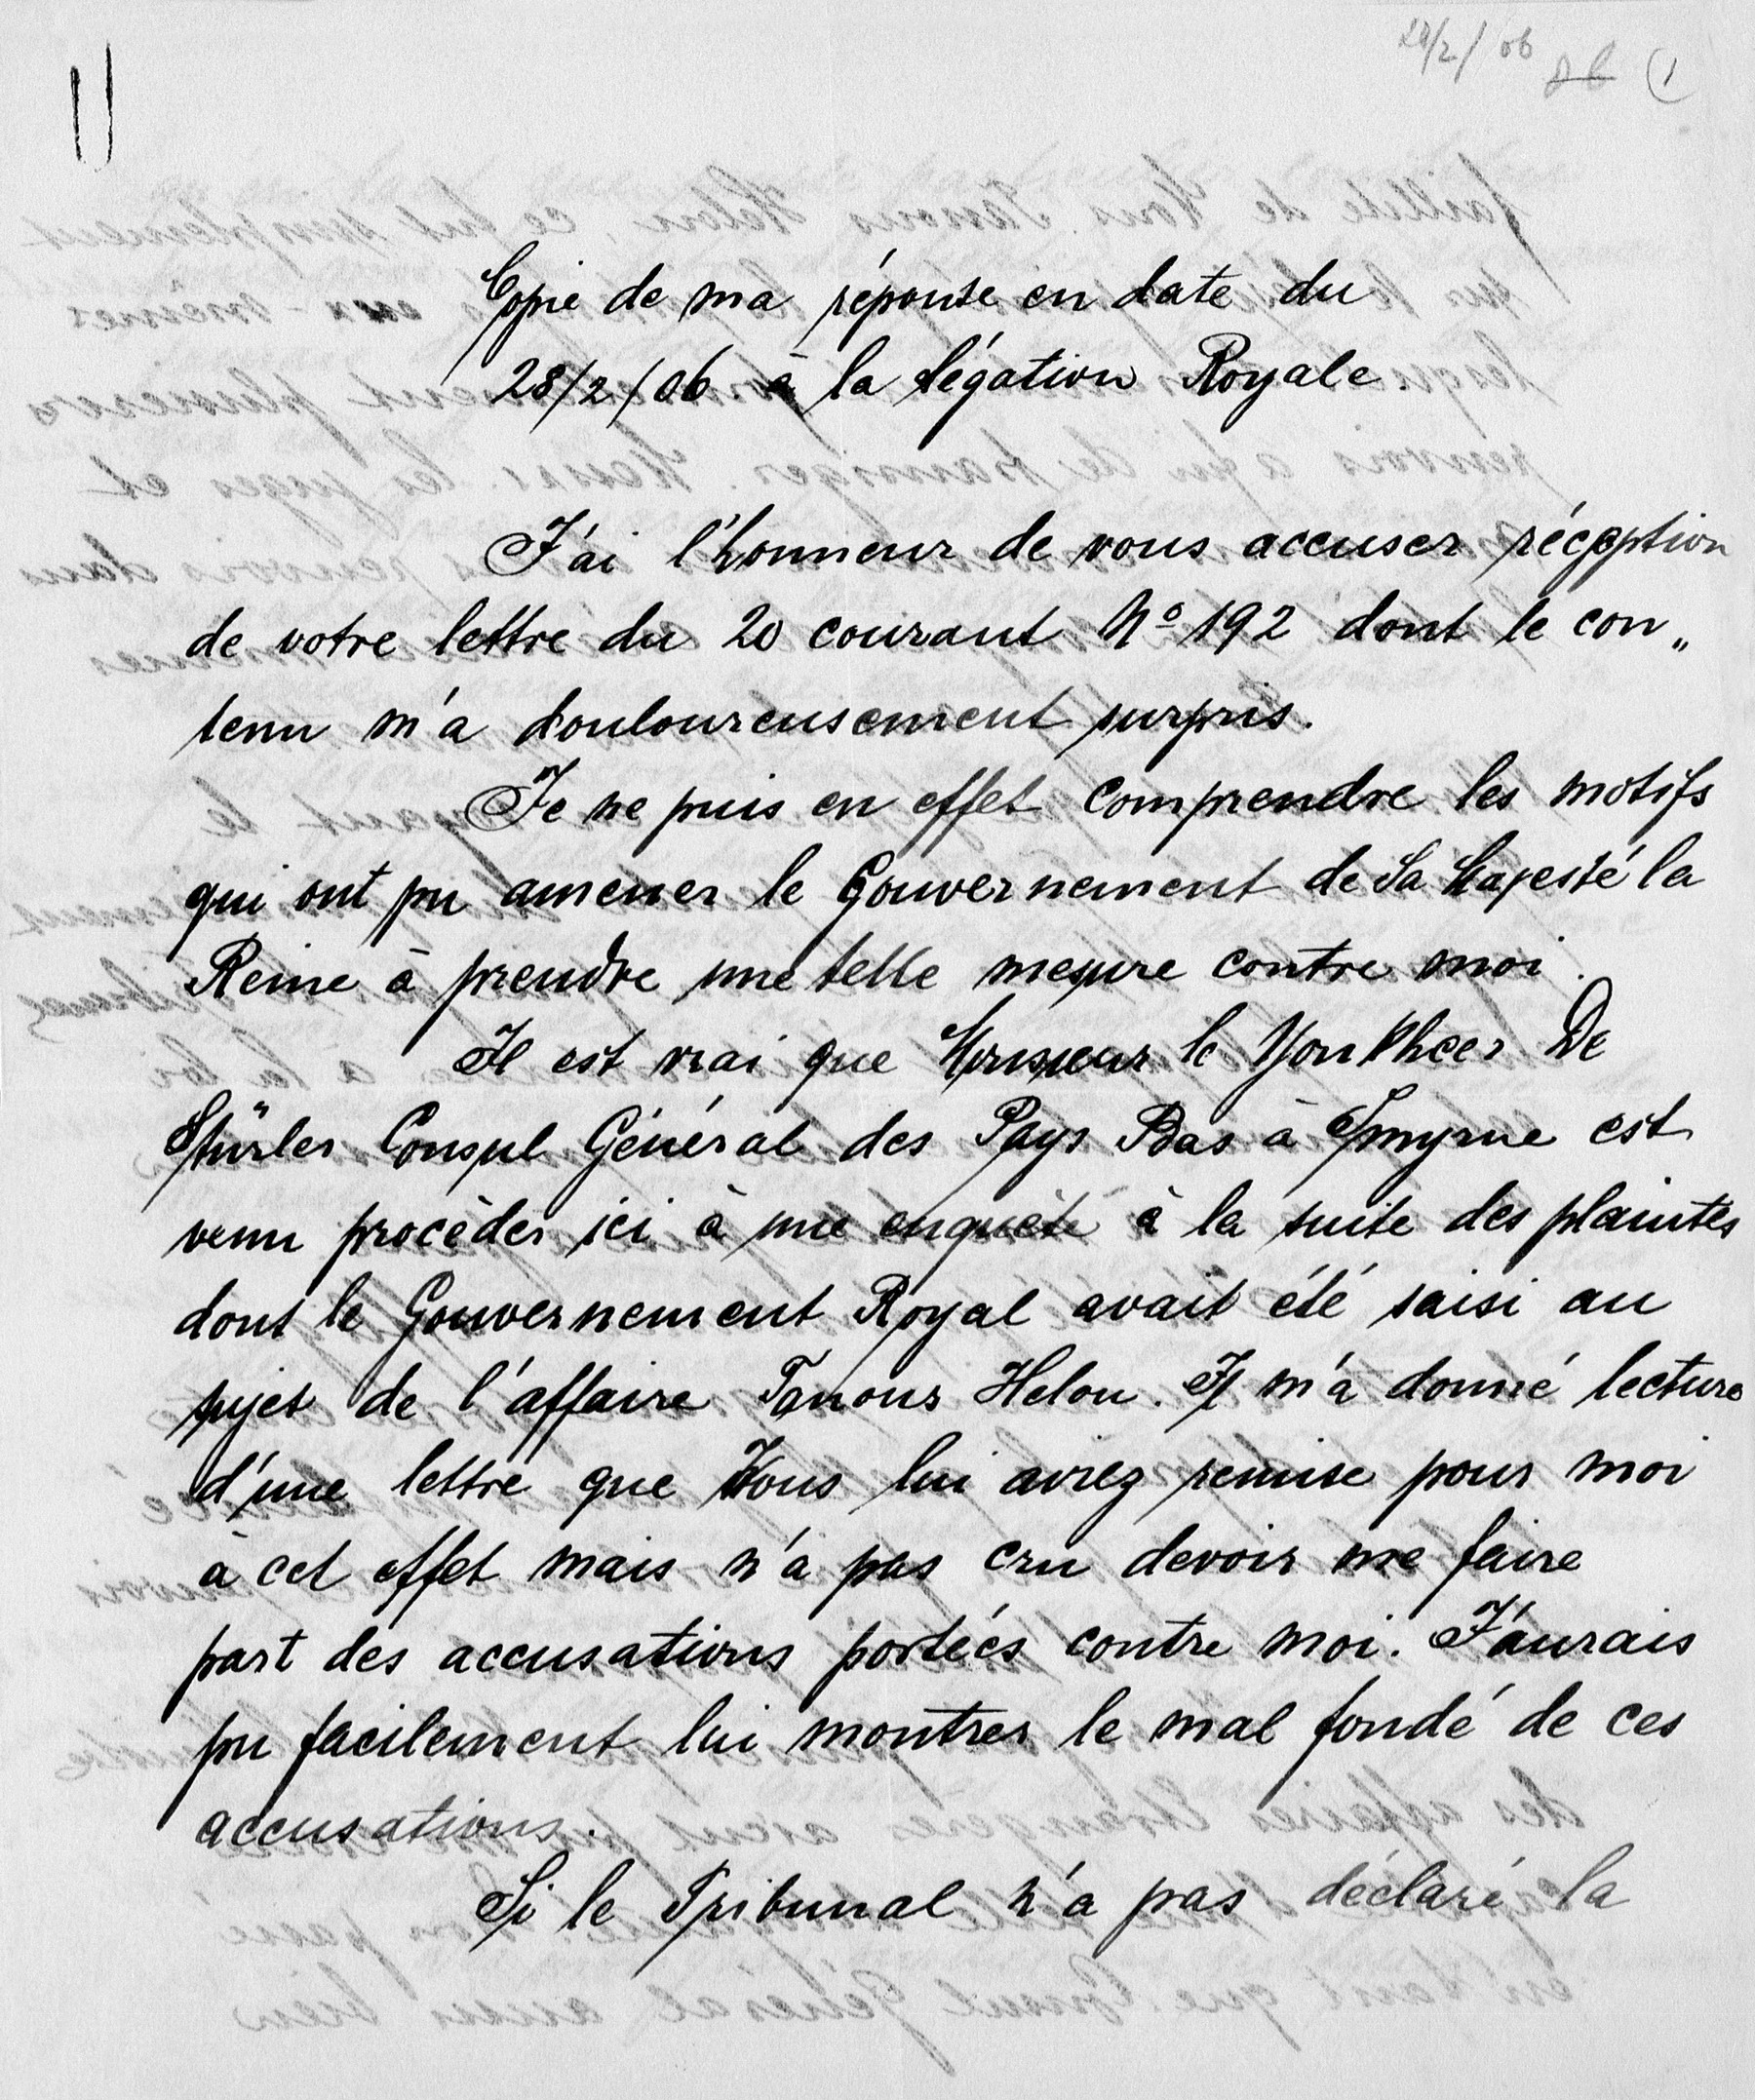 28/2/06 (1
Copie de ma réponse en date du
28/2/06 à la légation Royale.
J'ai l'honneur de vous accuser réception
de votre lettre du 20 courant No 192 dont le con„
tenu m'a douloureusement surpris.
Je ne puis en effet comprendre les motifs
qui ont pu amener le Gouvernement de Sa Majesté la
Reine à prendre une telle mesure contre moi.
Il est vrai que Monsieur le Yonkheer De
Stürler Consul Général des Pays Bas à Smyrne est
venu procéder ici à une enquête à la suite des plaintes
dont le Gouvernement Royal avait été saisi au
sujet de l'affaire Tanous Helou. Il m'a donné lecture
d'une lettre que Vous lui aviez remise pour moi
à cet effet mais n'a pas cru devoir me faire
part des accusations portées contre moi. J'aurais
pu facilement lui montrer le mal fondé de ces
accusations.
Si le Tribunal n'a pas déclaré la